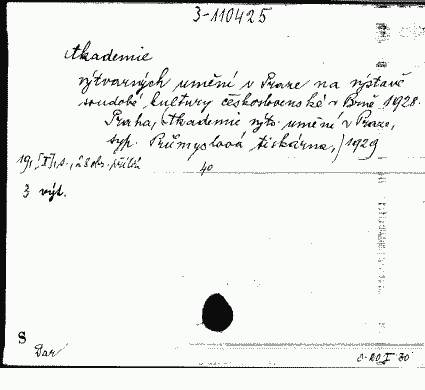 3-110425
Akademie
výtvarných umění v Praze na výstavě
soudobé kultury československé v Brně 1928.
Praha, (Akademie výtv. umění v Praze,
typ. Průmyslová tiskárna,) 1929
19, [I], s., 28 obr. příloh
4°
3 výt.
S
Dar